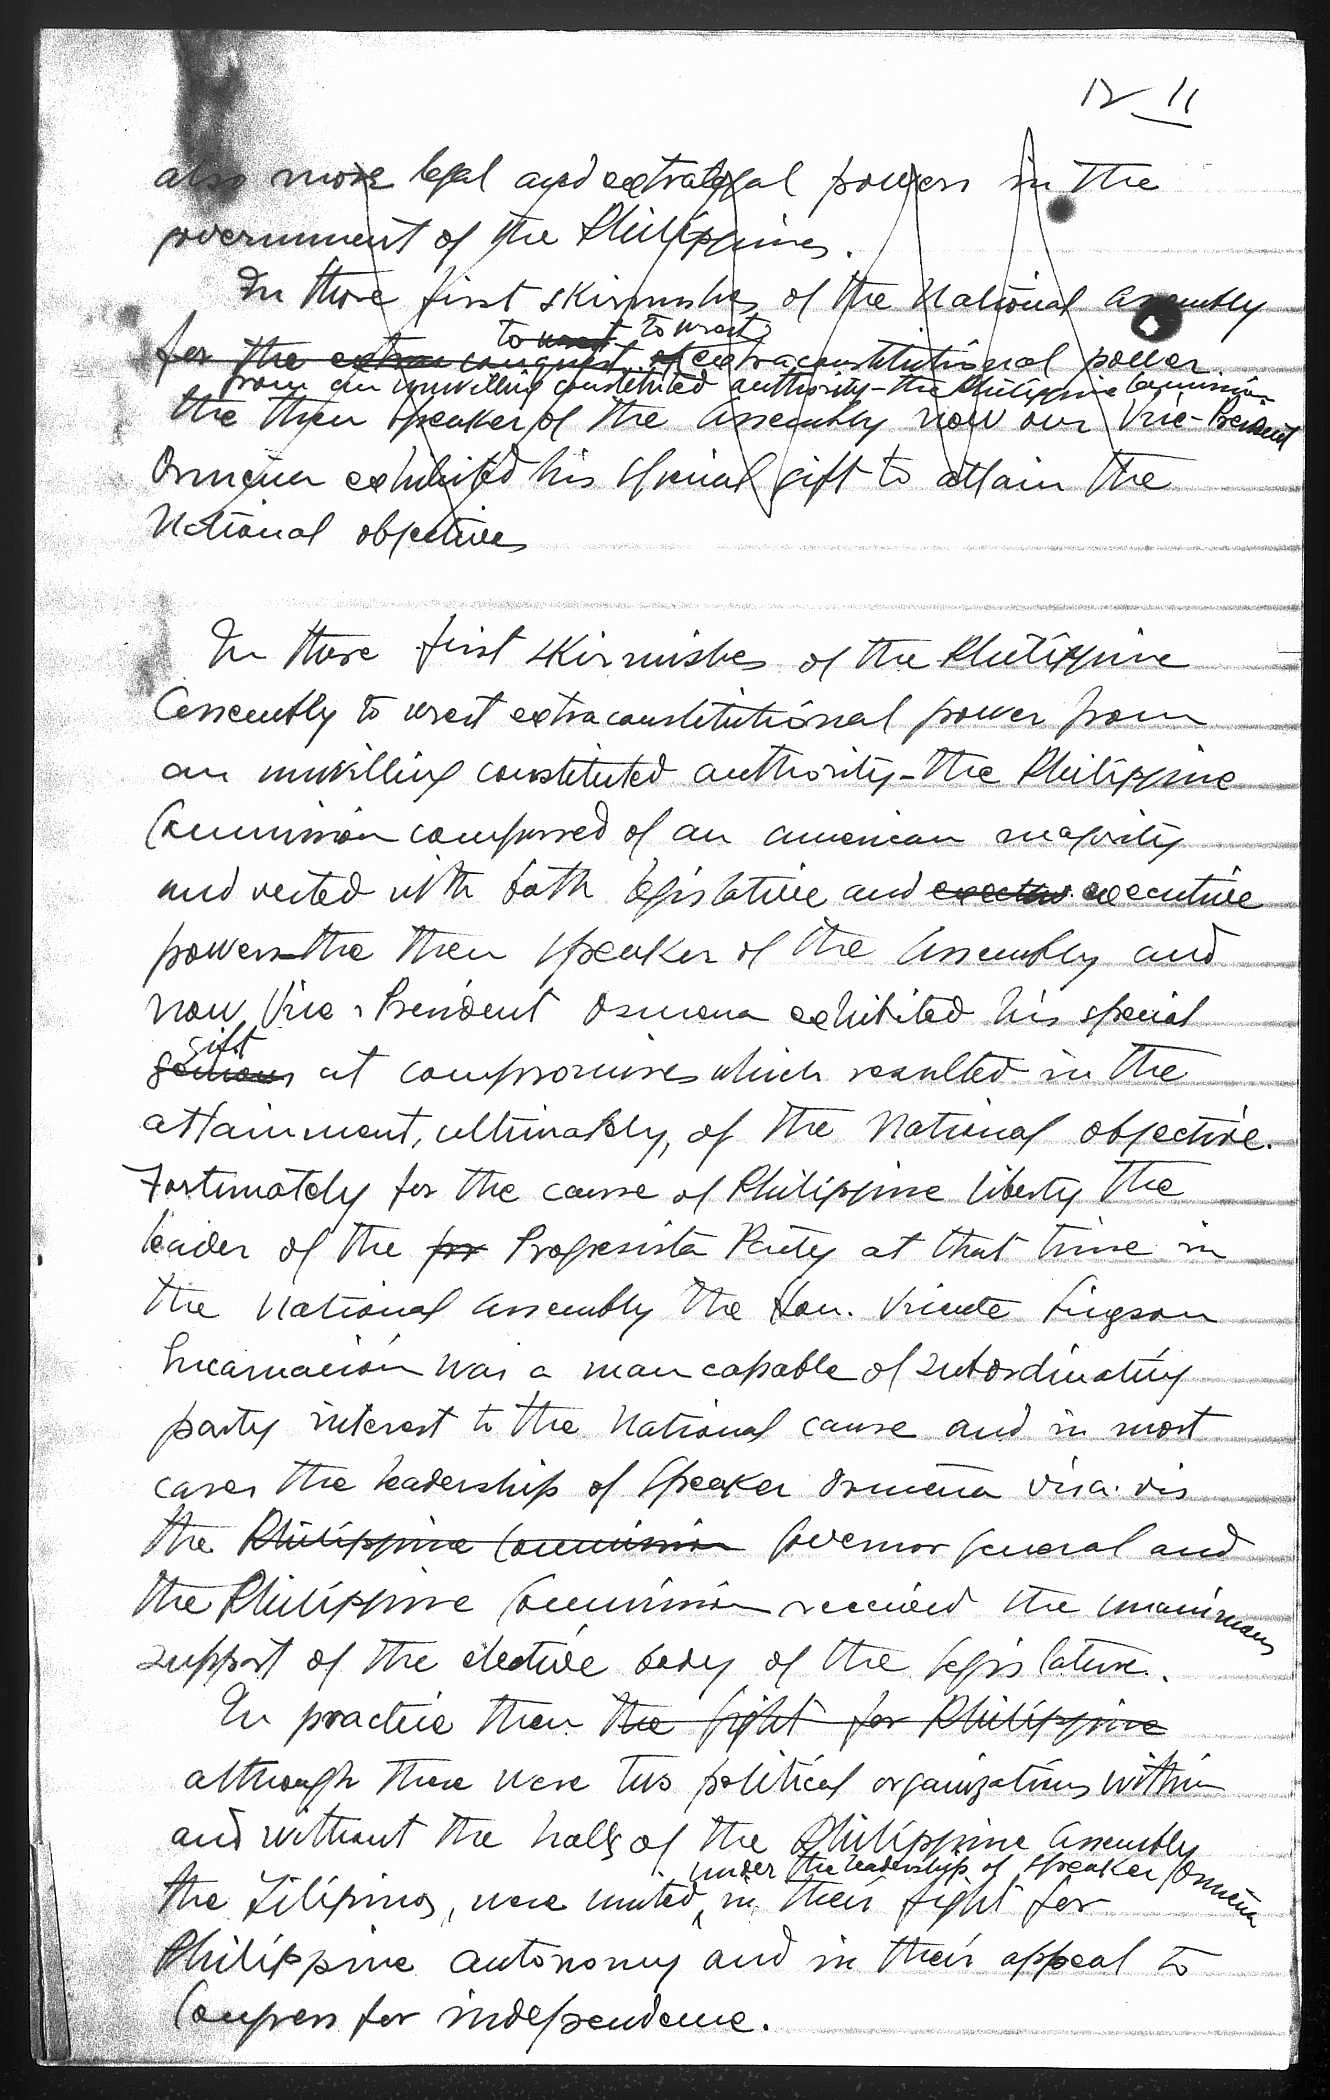 12 11
also more legal and extralegal powers in the
government of the Philippines.
In those first skirmishes of the National Assembly
to wrest to wrest
for the extra conquest of extraconstitutional power
from an unwilling constituted authority - the Philippine Commission
the then speaker of the Assembly now our Vice-President
Osmeña exhibited his special gift to attain the
National objectives
In those first skirmishes of the Philippine
Assembly to wrest extraconstitutional power from
an unwilling constituted authority - the Philippine
Commission composed of an american majority
and vested with both legislative and executive
powers - the then speaker of the Assembly and
now Vice-President Osmena exhibited his special
gift
at compromises which resulted in the
attainment, ultimately, of the National objective.
Fortunately for the cause of Philippine liberty the
leader of the pr Progresista Party at that time in
the National Assembly the Hon. Vicente Singson
Incarnación was a man capable of subordinating
party interest to the National cause and in most
cases the leadership of Speaker Osmeña vis a vis
the Philippine Commission Governor General and
the Philippine Commission received the unanimous
support of the elective body of the legislature.
In practice then the fight for Philippine
although there were two political organizations within
and without the halls of the Philippine Assembly
under the leadership of speaker Osmeña
the Filipinos, were united, in their fight for
Philippine autonomy and in their appeal to
Congress for independence.